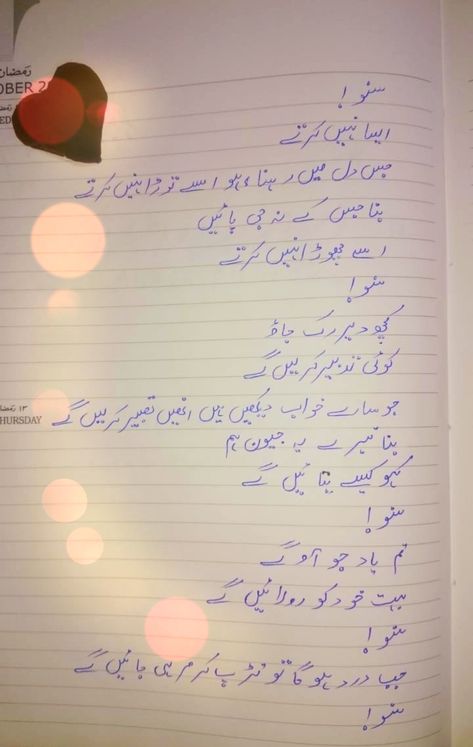 رمضان
OBER 20
ED
سنو!
ایسا نہیں کرتے
جس دل میں رہنا ہو اسے توڑا نہیں کرتے
بنا جس کے نہ جی پائیں
اسے چھوڑا نہیں کرتے
سنو!
کچھ دیر رک جاؤ
کوئی تدبیر کرلیں گے
جو سارے خواب دیکھیں ہیں انھیں تعبیر کرلیں گے
۱۳ رمضا
HURSDAY
بنا تیرے یہ جیون ہم
کہو کیسے بتائیں گے
سنو!
تم یاد جو آو گے
بہت خود کو رولائیں گے
سنو!
جب درد ہو گا تو تڑپ کر مر ہی جائیں گے
سنو!